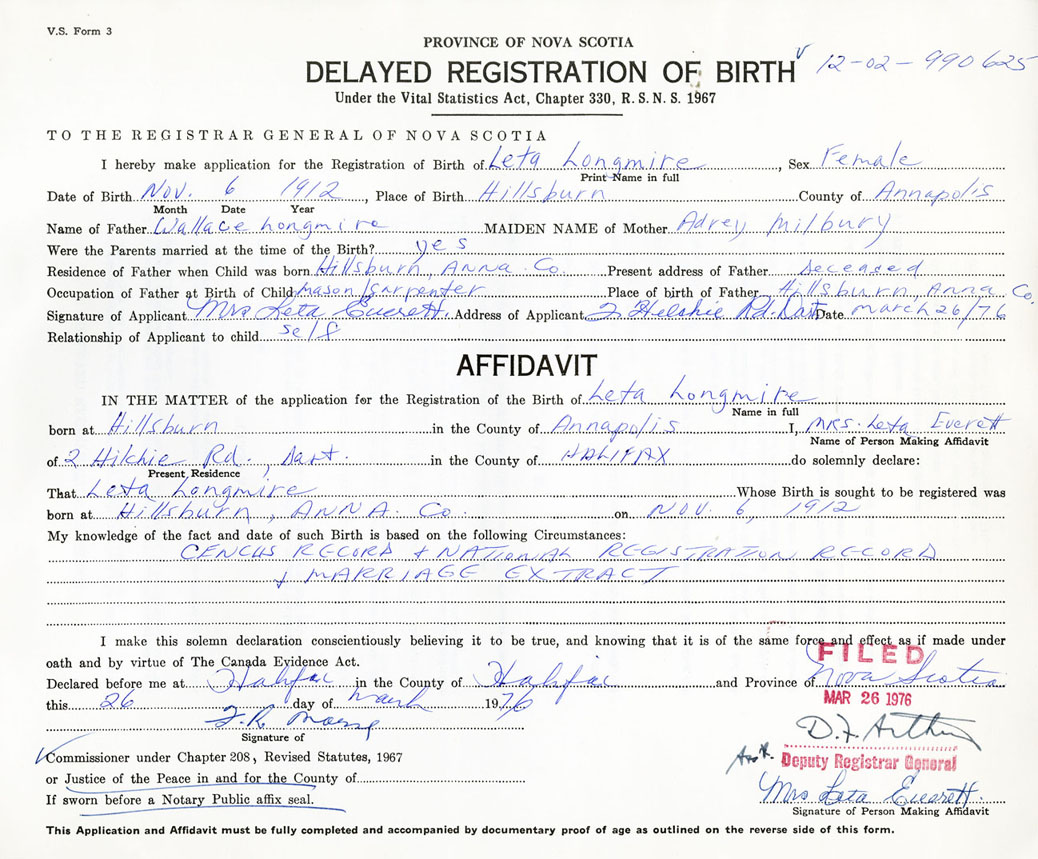 V.S. Form 3
PROVINCE OF NOVA SCOTIA
DELAYED REGISTRATION OF BIRTH 12-02-990625
Under the Vital Statistics Act, Chapter 330, R.S.N.S. 1967
TO THE REGISTRAR GENERAL OF NOVA SCOTIA
I hereby make application for the Registration of Birth of Leta Longmire, Sex Female
Print Name in full
Date of Birth Nov. 6 1912, Place of Birth Hillsburn County of Annapolis
Month Date Year
Name of Father Wallace Longmire MAIDEN NAME of Mother Adrey Milbury
Were the Parents married at the time of the Birth? yes
Residence of Father when Child was born Hillsburn, Anna. Co. Present address of Father deceased
Occupation of Father at Birth of Child Mason/Carpenter Place of birth of Father Hillsburn, Anna Co.
Signature of Applicant Mrs Leta Everett Address of Applicant 2 Hilchie Rd. Dart Date March 26/76
Relationship of Applicant to child self
AFFIDAVIT
IN THE MATTER of the application for the Registration of the Birth of Leta Longmire
Name in full
born at Hillsburn in the County of Annapolis I, Mrs. Leta Everett
Name of Person Making Affidavit
of 2 Hilchie Rd., Dart. in the County of HALIFAX do solemnly declare:
Present Residence
That Leta Longmire Whose Birth is sought to be registered was
born at Hillsburn, ANNA. Co. on Nov. 6, 1912
My knowledge of the fact and date of such Birth is based on the following Circumstances:
CENCUS RECORD + NATIONAL REGISTRATION RECORD
+ MARRIAGE EXTRACT
I make this solemn declaration conscientiously believing it to be true, and knowing that it is of the same force and effect as if made under
oath and by virtue of The Canada Evidence Act.
FILED
Declared before me at Halifax in the County of Halifax and Province of Nova Scotia
MAR 26 1976
this 26 day of March 1976
Signature of
D. F. Arthur
Commissioner under Chapter 208, Revised Statutes, 1967
Asst. Deputy Registrar General
or Justice of the Peace in and for the County of
If sworn before a Notary Public affix seal.
Mrs Leta Everett
Signature of Person Making Affidavit
This Application and Affidavit must be fully completed and accompanied by documentary proof of age as outlined on the reverse side of this form.